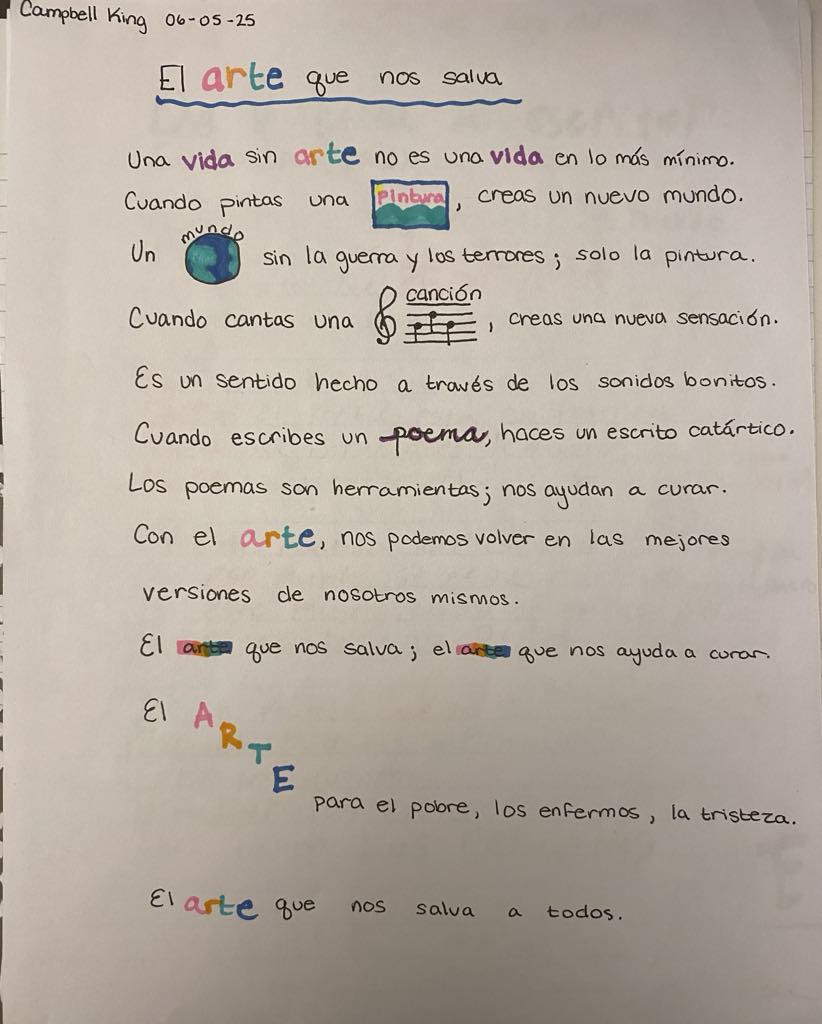 Campbell King 06-05-25
El arte que nos salva
Una vida sin arte no es una vida en lo más mínimo.
Cuando pintas una pintura, creas un nuevo mundo.
Un mundo sin la guerra y los terrores; solo la pintura.
Cuando cantas una canción, creas una nueva sensación.
Es un sentido hecho a través de los sonidos bonitos.
Cuando escribes un poema, haces un escrito catártico.
Los poemas son herramientas; nos ayudan a curar.
Con el arte, nos podemos volver en las mejores
versiones de nosotros mismos.
El arte que nos salva; el arte que nos ayuda a curar.
El ARTE
para el pobre, los enfermos, la tristeza.
El arte que nos salva a todos.